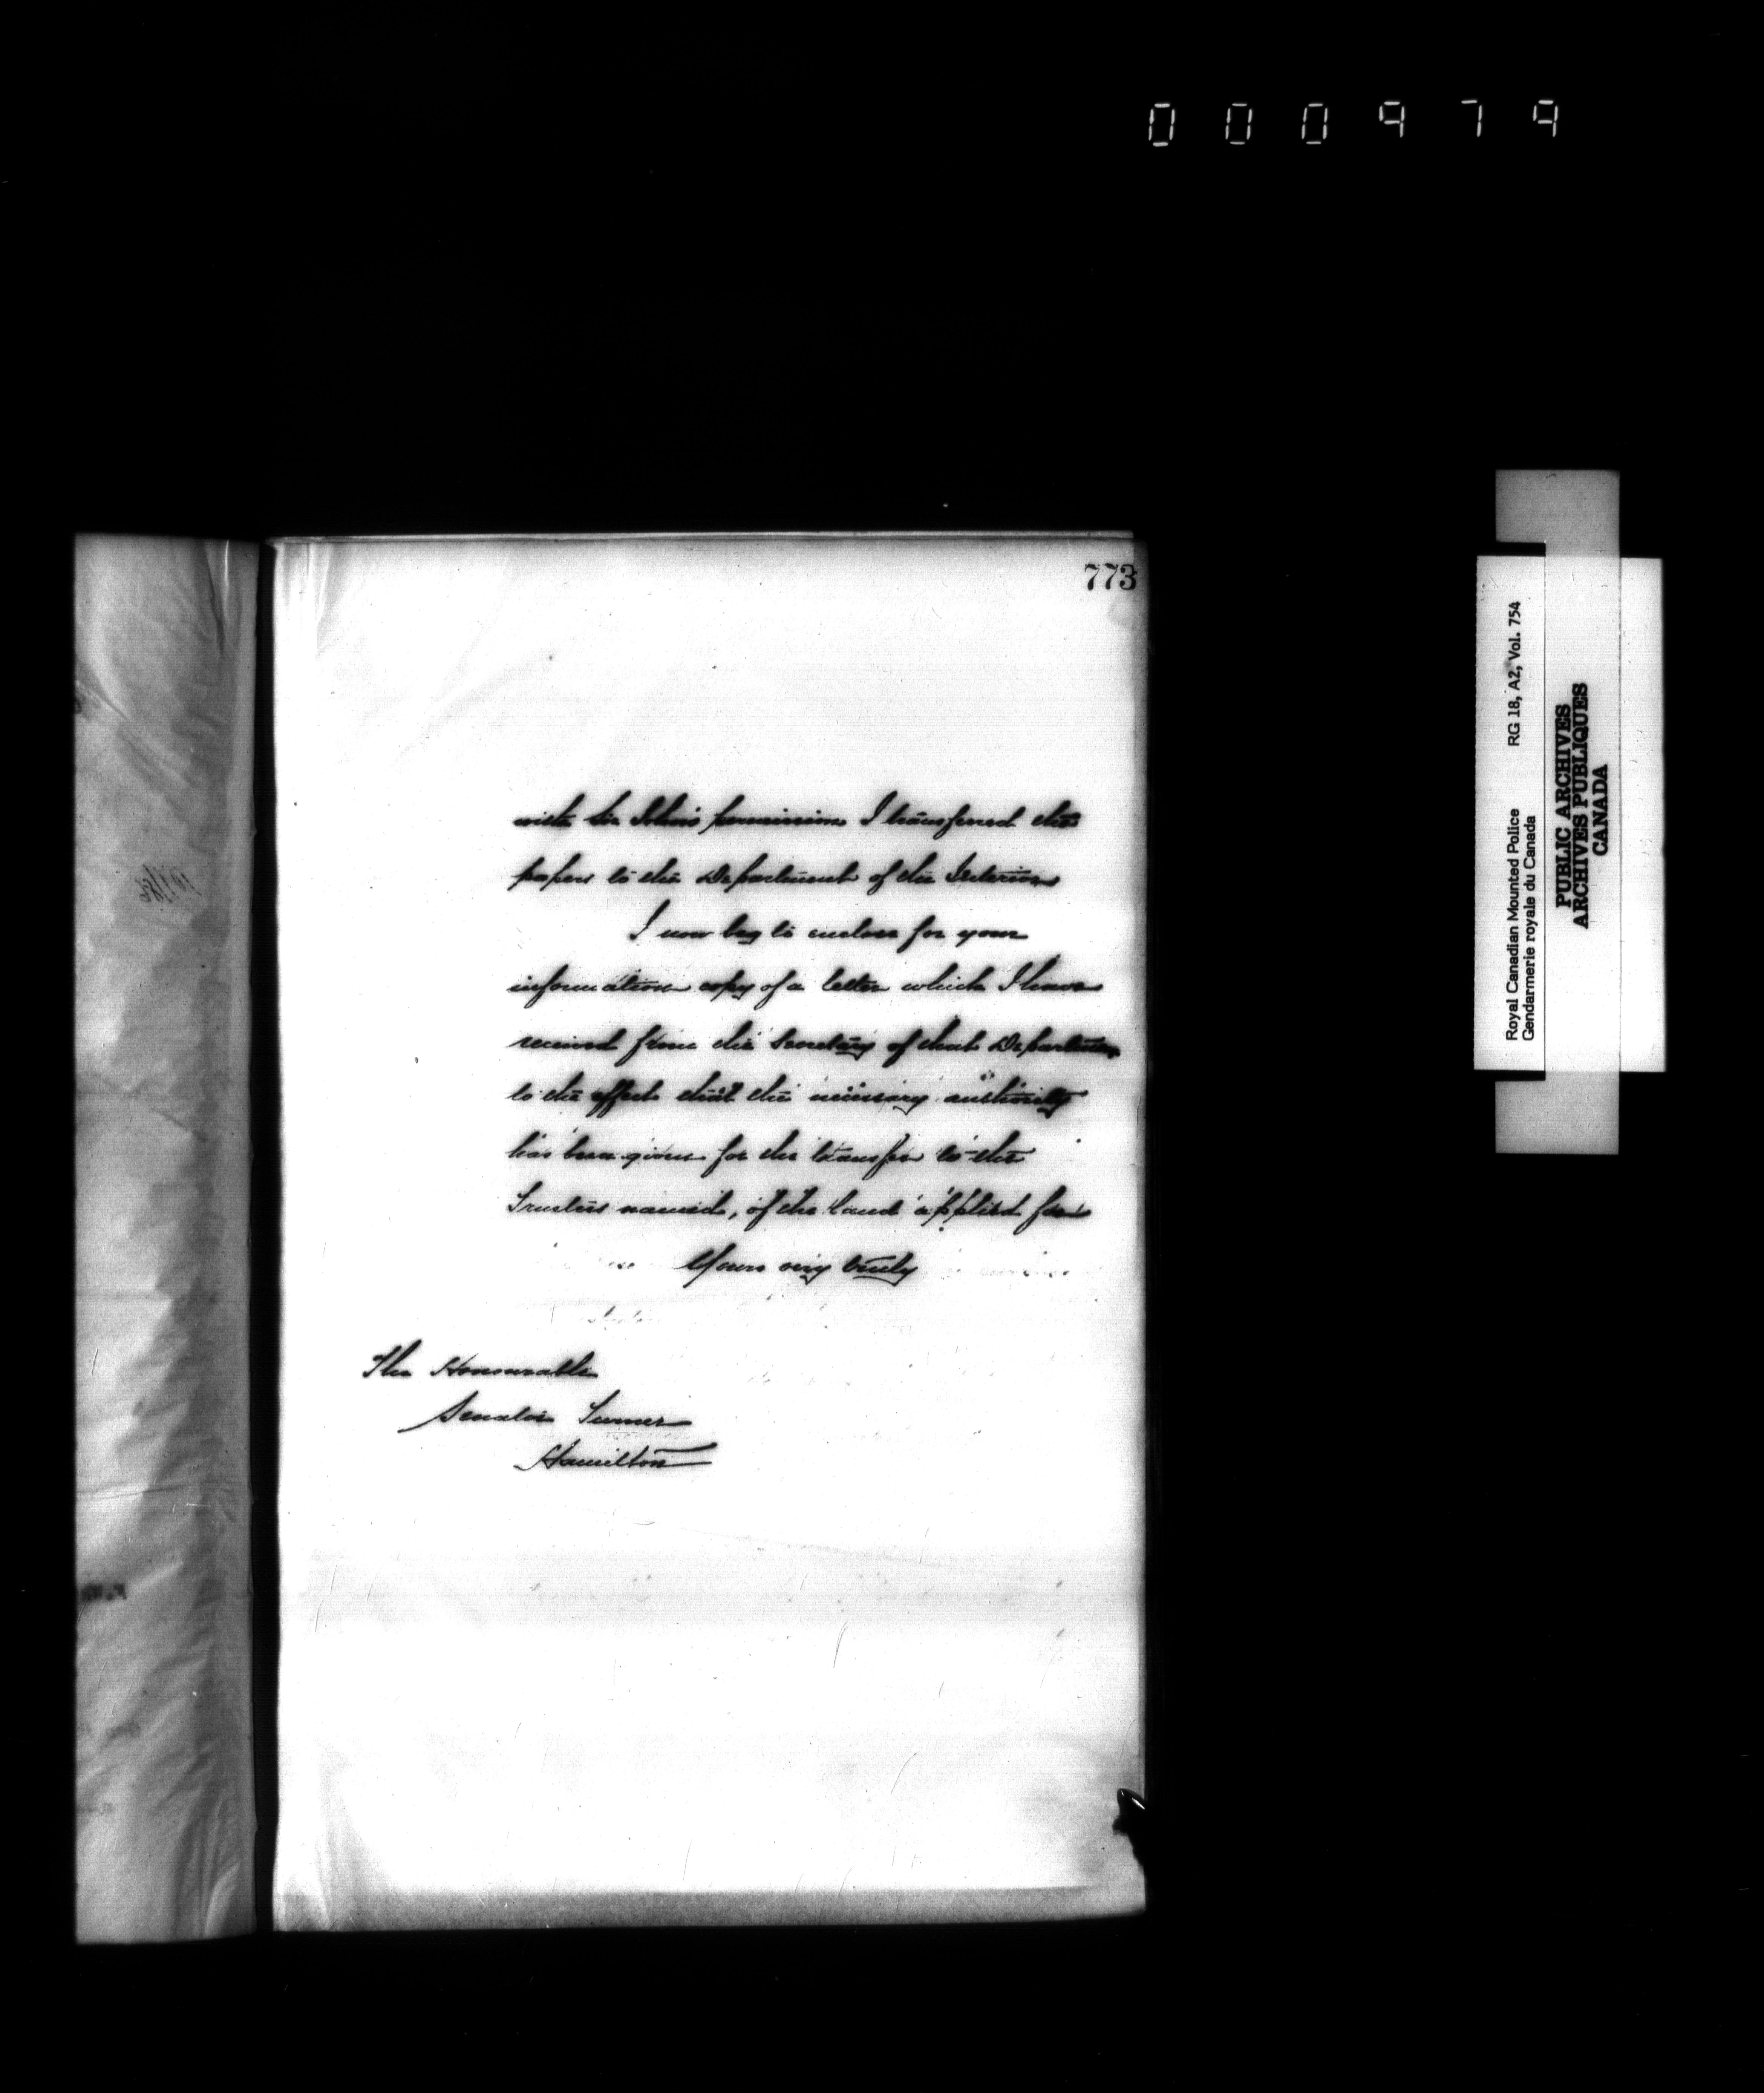 000979
773
with Sir John's permission I transferred the
papers to the Department of the Interior
I now beg to enclose for your
information copy of a letter which I have
received from the Secretary of that Department
to the effect that the necessary authority
has been given for the transfer to the
Trustees named, of the land applied for
Yours very truly
The Honourable
Senator Turner
Hamilton
Royal Canadian Mounted Police RG 18, A2, Vol. 754
Gendarmerie royale du Canada
PUBLIC ARCHIVES
ARCHIVES PUBLIQUES
CANADA